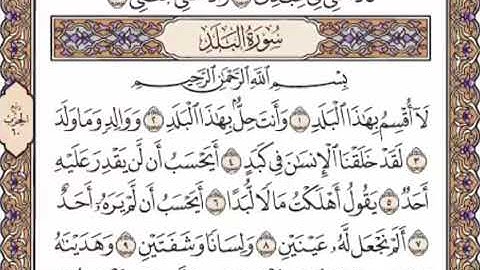 سُورَةُ الْبَلَدِ
بِسْمِ اللَّهِ الرَّحْمَٰنِ الرَّحِيمِ
لَا أُقْسِمُ بِهَٰذَا الْبَلَدِ ١ وَأَنتَ حِلٌّ بِهَٰذَا الْبَلَدِ ٢ وَوَالِدٍ وَمَا وَلَدَ
٣ لَقَدْ خَلَقْنَا الْإِنسَٰنَ فِي كَبَدٍ ٤ أَيَحْسَبُ أَن لَّن يَقْدِرَ عَلَيْهِ
أَحَدٌ ٥ يَقُولُ أَهْلَكْتُ مَالًا لُّبَدًا ٦ أَيَحْسَبُ أَن لَّمْ يَرَهُ أَحَدٌ
٧ أَلَمْ نَجْعَل لَّهُ عَيْنَيْنِ ٨ وَلِسَانًا وَشَفَتَيْنِ ٩ وَهَدَيْنَٰهُ
الحزب
٦٠